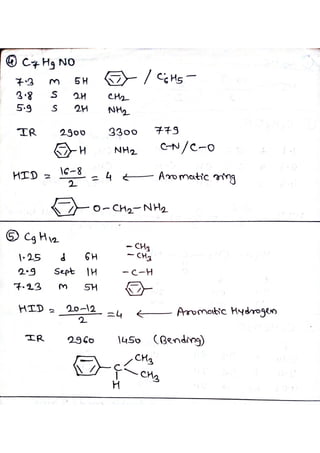 ④ C7 H9 NO
7.3 m 5H / C6H5 –
3.8 S 2H CH2
5.9 S 2H NH2
IR 2900 3300 779
–H NH2 C-N / C-O
HID = 16-8 / 2 = 4 ← Aromatic ring
O – CH2 – NH2
⑤ C9 H12
1.25 d 6H – CH3 – CH3
2.9 Sept 1H – C – H
7.23 m 5H
HID = 20-12 / 2 = 4 ← Aromatic Hydrogen
IR 2960 1450 (Bending)
CH3
C
CH3
H